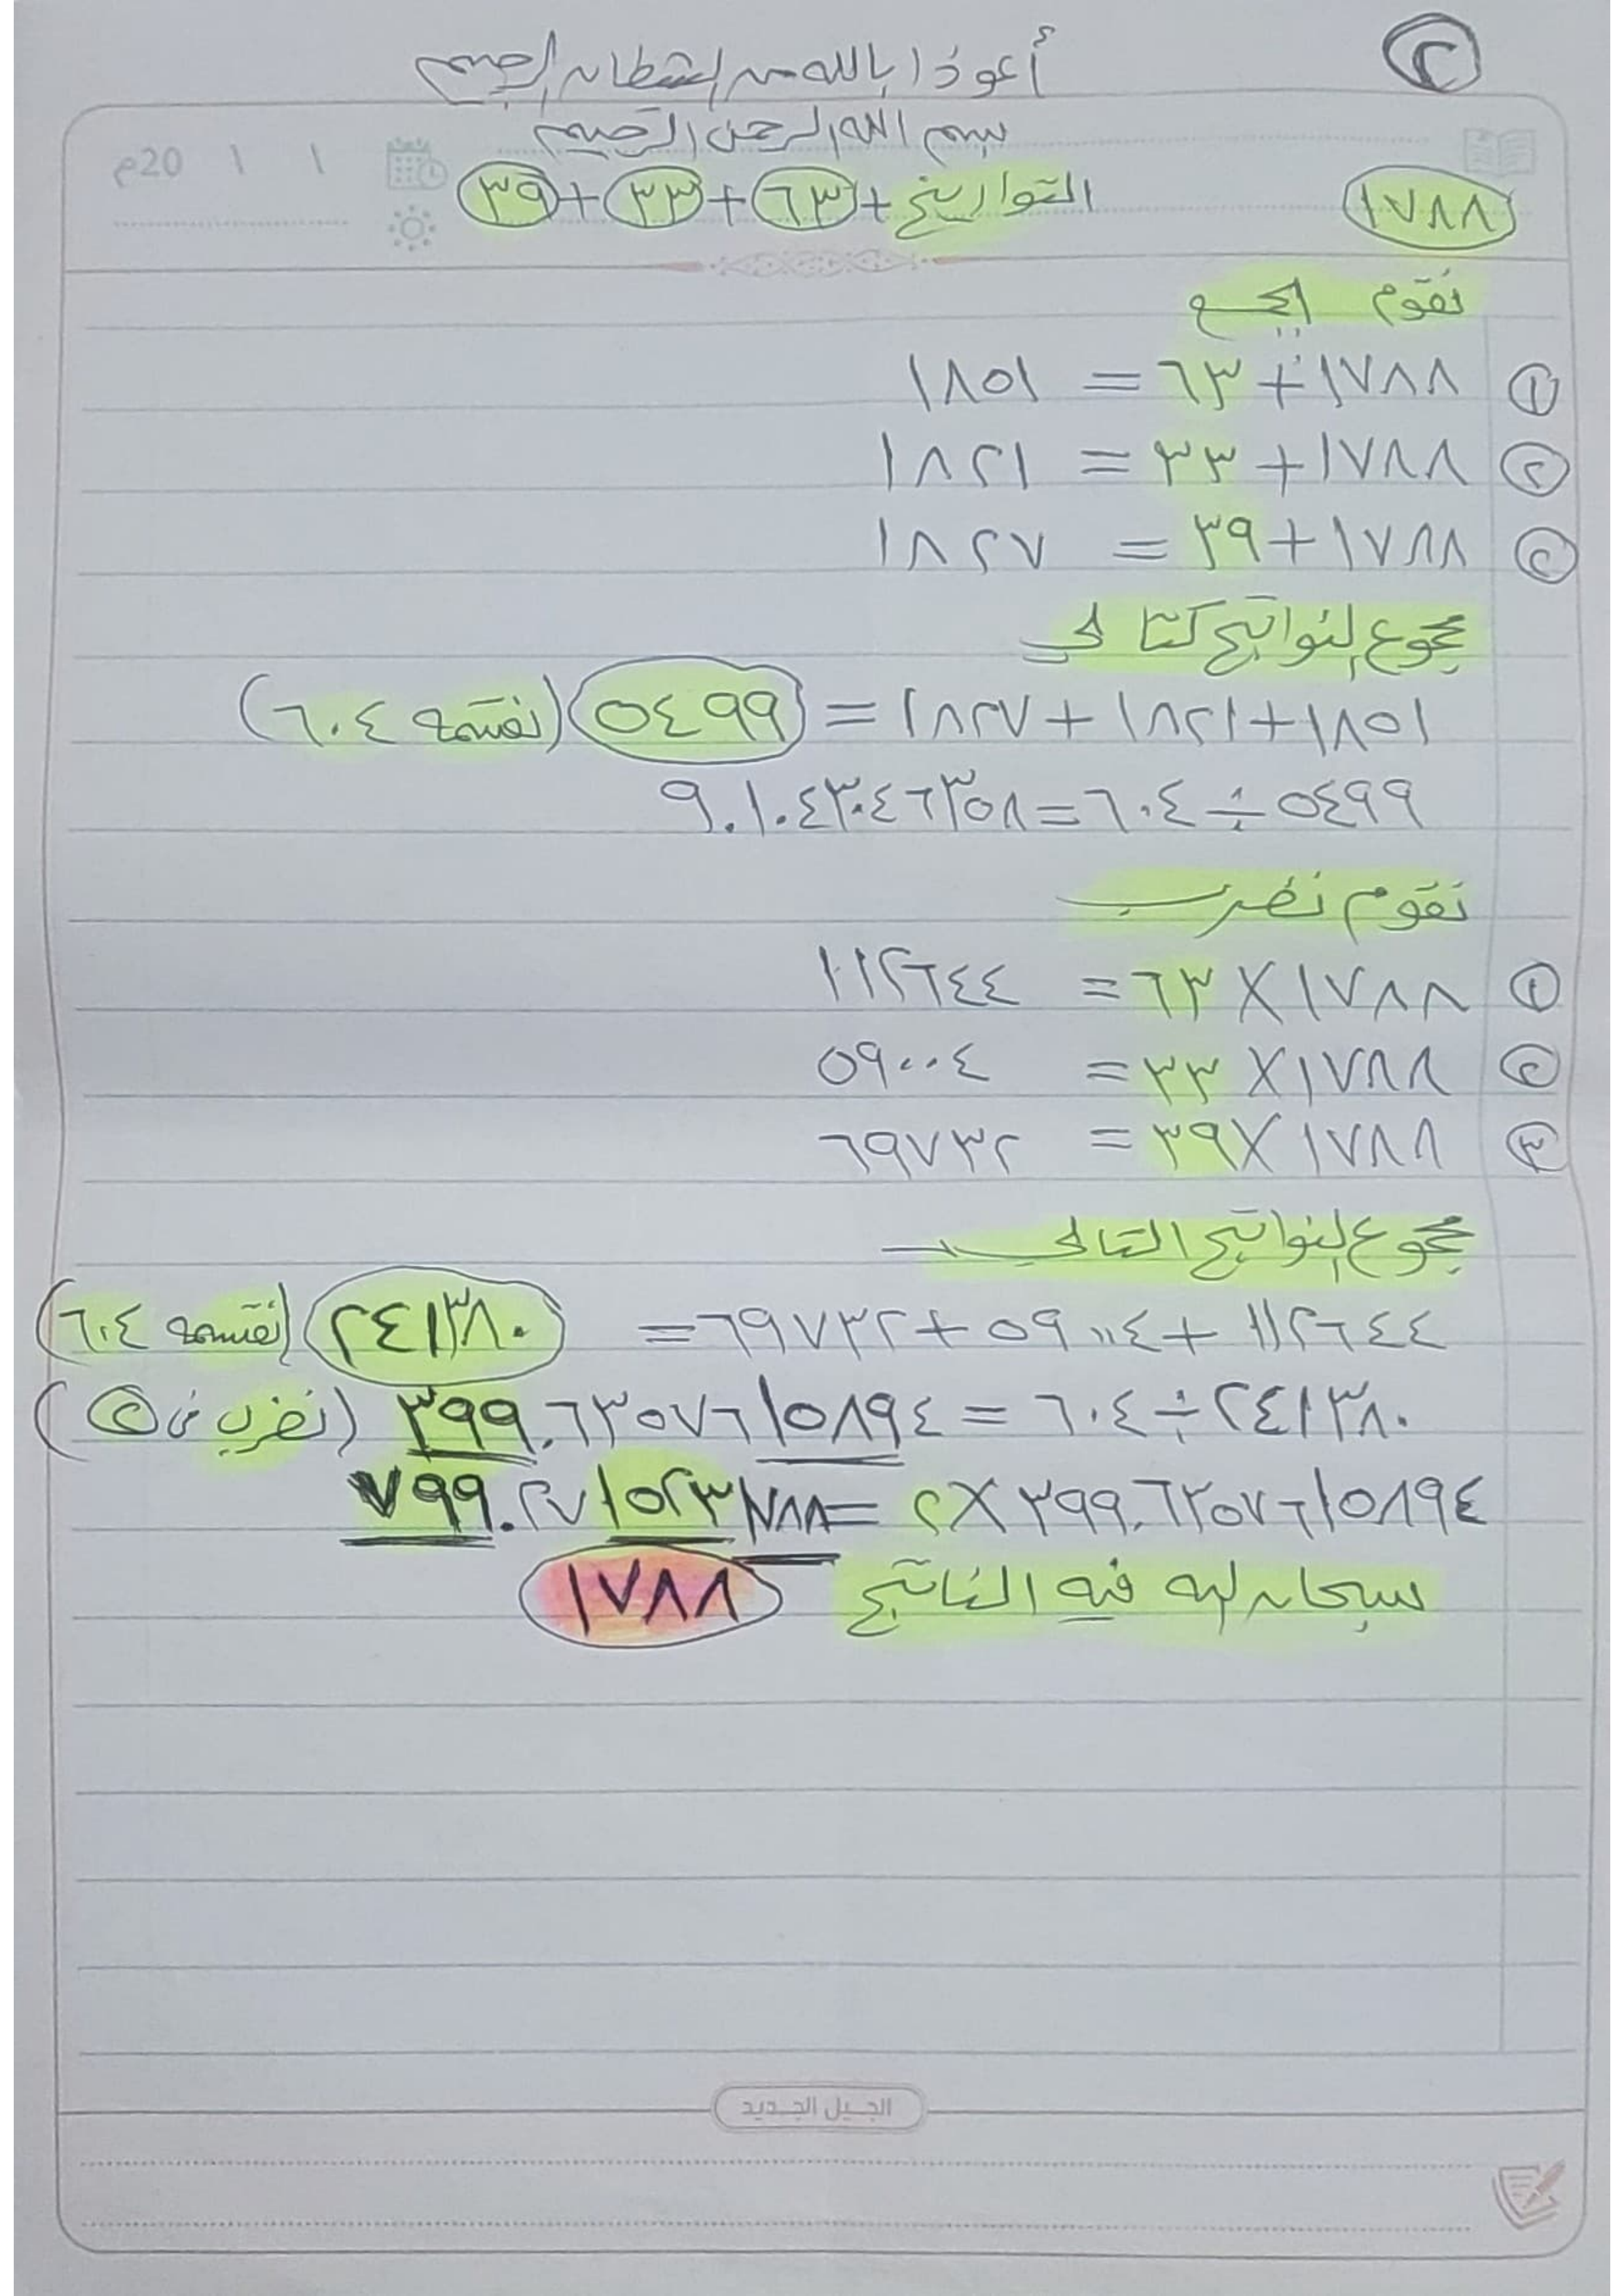 ٢
أعوذ بالله من الشيطان الرجيم
بسم الله الرحمن الرحيم
20م ١ ١
١٧٨٨ التواريخ + ٦٣ + ٣٣ + ٣٩
نقوم الجمع
١ ١٧٨٨ + ٦٣ = ١٨٥١
٢ ١٧٨٨ + ٣٣ = ١٨٢١
٣ ١٧٨٨ + ٣٩ = ١٨٢٧
مجموع النواتج كتالي
١٨٥١ + ١٨٢١ + ١٨٢٧ = ٥٤٩٩ (نقسمه ٦٠٤)
٥٤٩٩ ÷ ٦٠٤ = ٩.١٠٤٣٠٤٦٣٥٨
نقوم نضرب
١ ١٧٨٨ × ٦٣ = ١١٢٦٤٤
٢ ١٧٨٨ × ٣٣ = ٥٩٠٠٤
٣ ١٧٨٨ × ٣٩ = ٦٩٧٣٢
مجموع النواتج التالي
١١٢٦٤٤ + ٥٩٠٠٤ + ٦٩٧٣٢ = ٢٤١٣٨٠ (نقسمه ٦٠٤)
٢٤١٣٨٠ ÷ ٦٠٤ = ٣٩٩.٦٣٥٧٦١٥٨٩٤ (نضرب في ٢)
٣٩٩.٦٣٥٧٦١٥٨٩٤ × ٢ = ٧٩٩.٢٧١٥٢٣١٧٨٨
سبحان الله فيه الناتج ١٧٨٨
الجيل الجديد